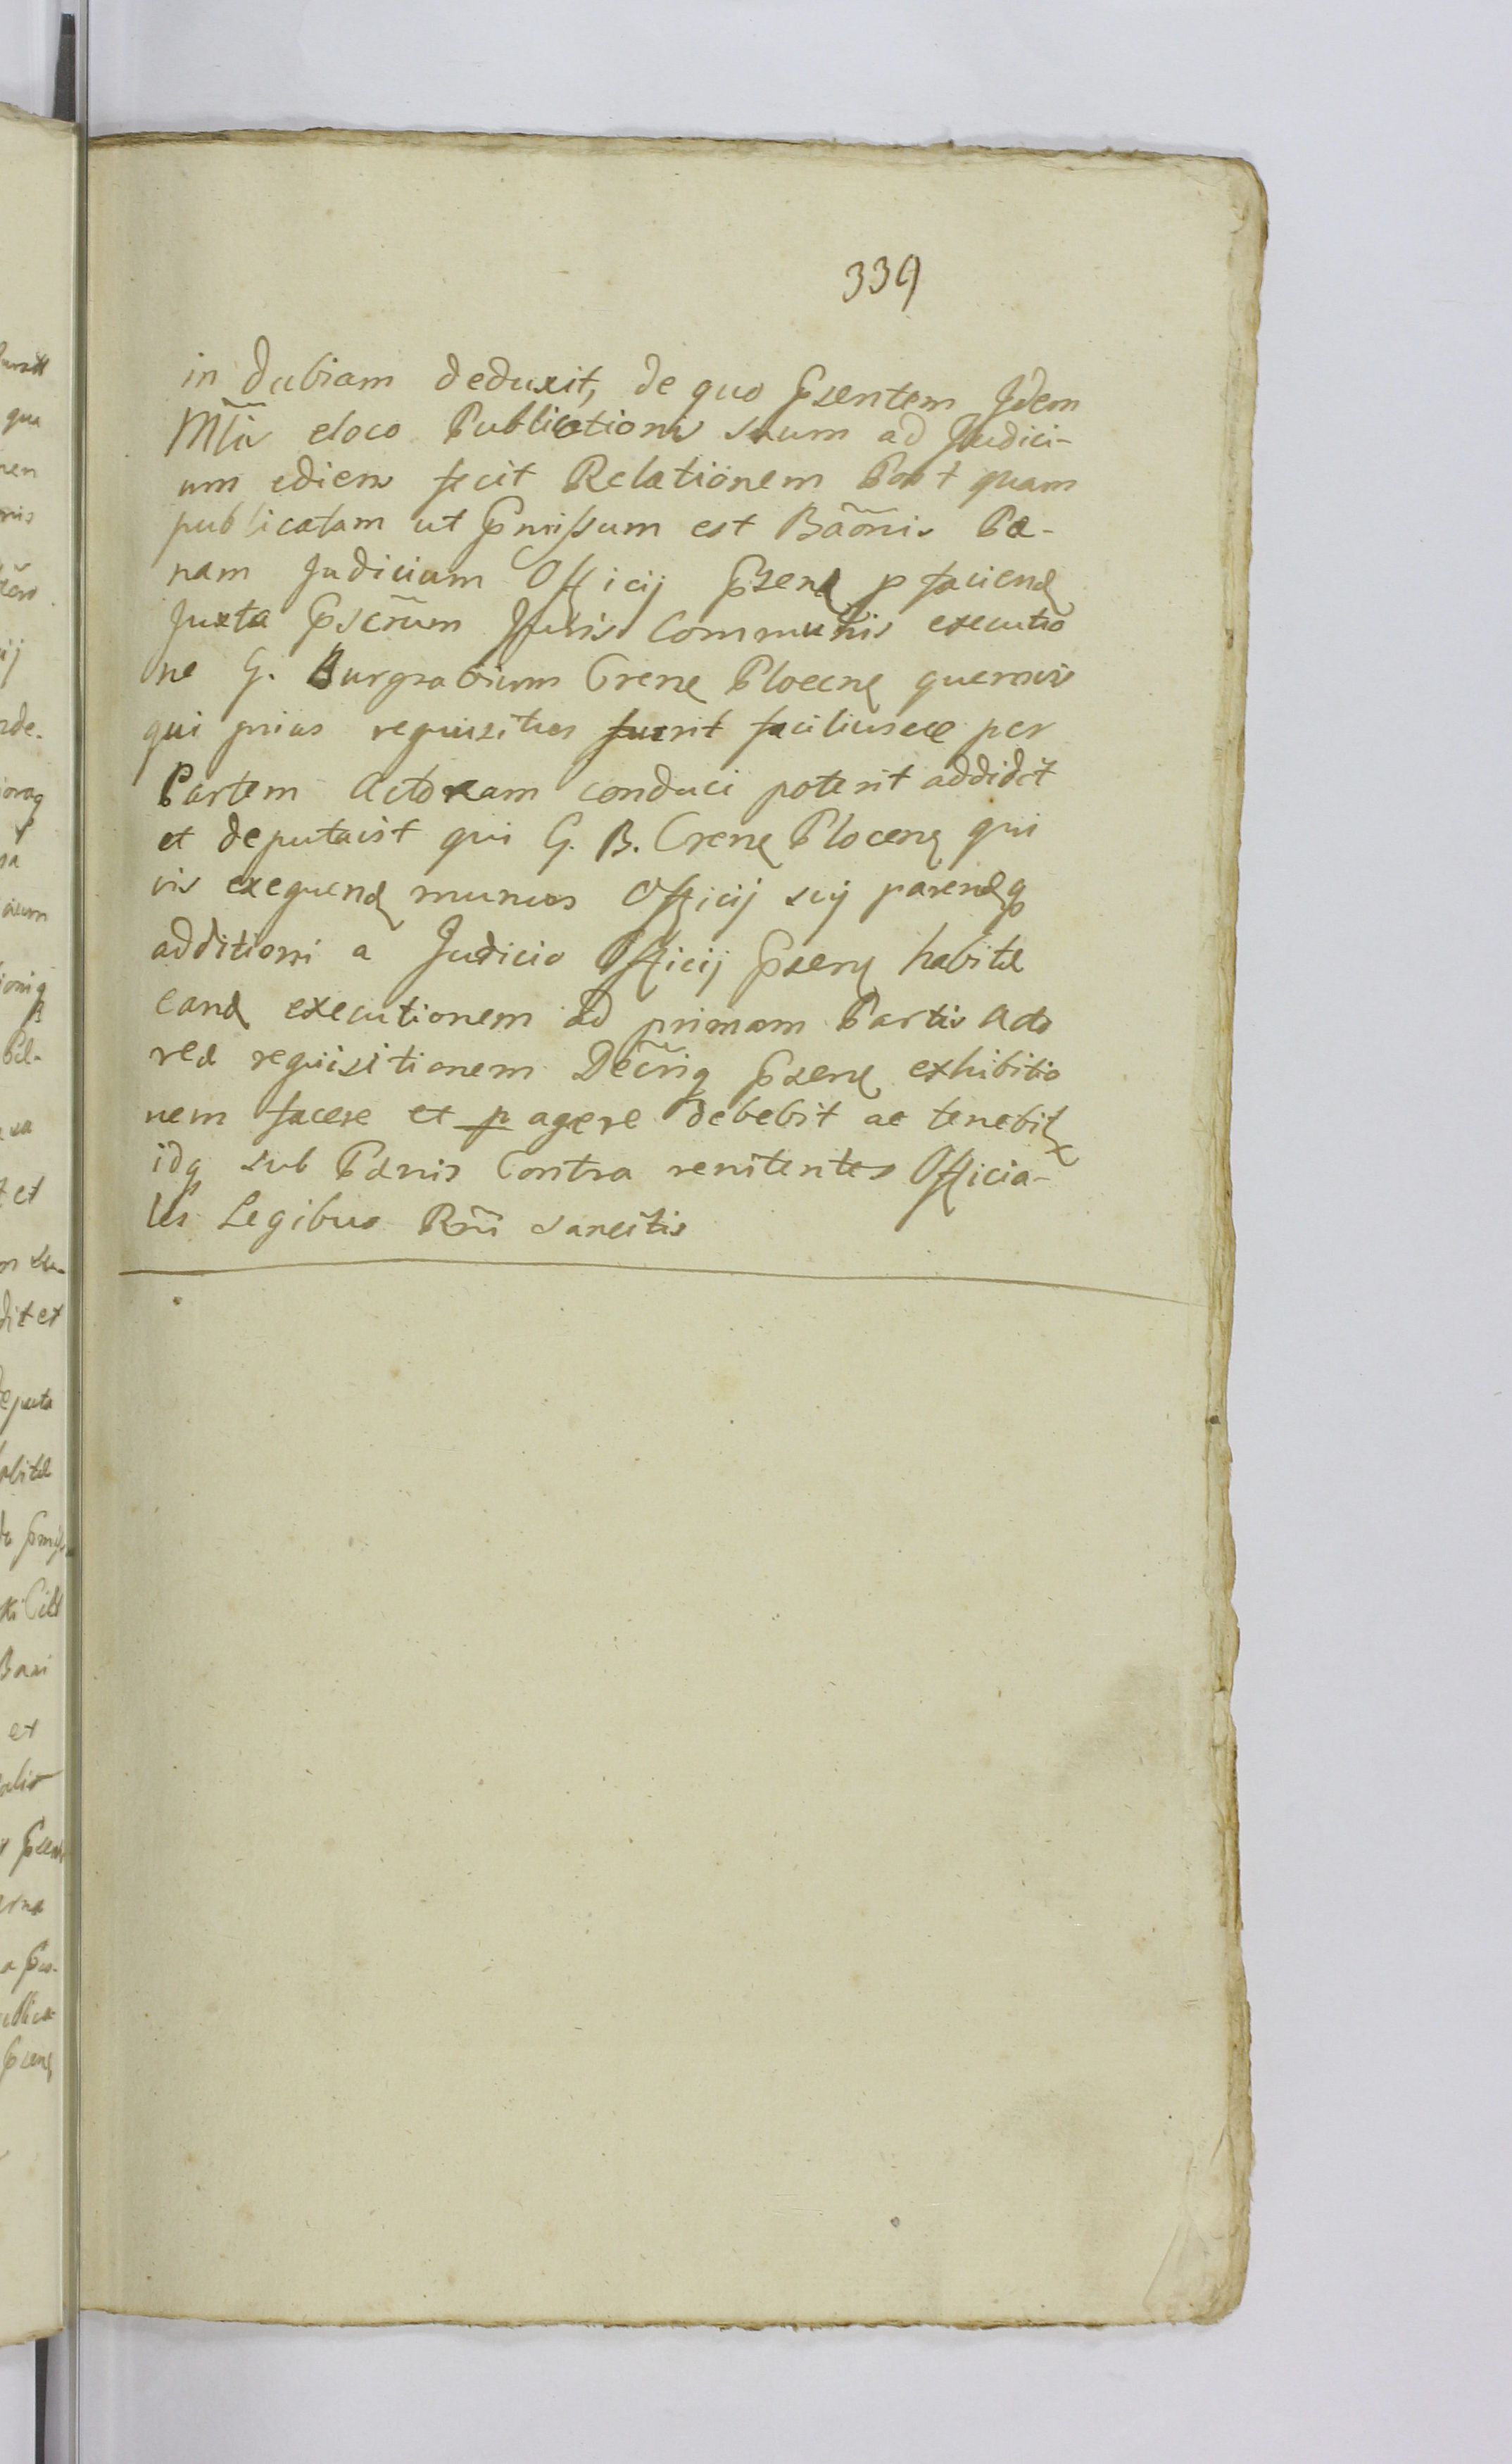 339
in dubiam deduxit, de quo Pսentem Idem
Mlir eloco Publicationis suum ad Judici-
um ediens fecit Relationem Post quam
publicatam ut Pmissum est Bãonis Pæ-
nam Judicium Officij Psenꝭ p faciend
Juxta Pscrũm Juris Communis executio
ne G. Burgrabium Crenꝭ Plocenꝭ quemvis
qui prius requisitus fuerit faciliusve per
Partem Actoream conduci poterit addidit
et deputavit qui G. B. Crenꝭ Plocenꝭ qui
vis exequend munus Officij sui parendq
additioni a Judicio Officij Psenꝭ habitæ
eand executionem ad primam Partis Acto
reæ requisitionem Decriq Psenꝭ exhibitio
nem facere et p agere debebit ac tenebit
idq sub Pænis Contra renitentes Officia-
les Legibus Rñi sancitis